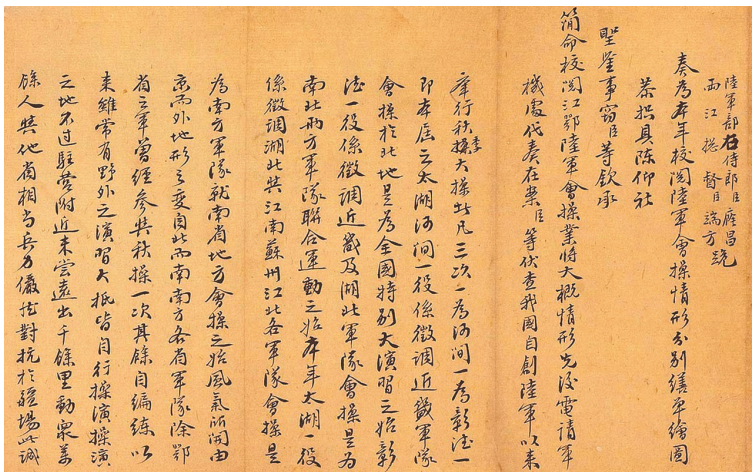 陸軍部右侍郎臣廕昌
兩江總督臣端方跪
奏為本年校閱陸軍會操情形分別繕單繪圖
恭摺具陳仰祈
聖鑒事竊臣等欽承
簡命校閱江鄂陸軍會操業將大概情形先後電請軍
機處代奏在案臣等伏查我國自創陸軍以來
舉行秋季大操此凡三次一為河間一為彰德一
即本屆之太湖河間一役係徵調近畿軍隊
會操於北地是為全國特別大演習之始彰
德一役係徵調近畿及湖北軍隊會操是為
南北兩方軍隊聯合運動之始本年太湖一役
係徵調湖北與江南蘇州江北各軍隊會操是
為南方軍隊就南省地方會操之始風氣所開由
京而外地形之變自北而南南方各省軍隊除鄂
省之軍曾經參與秋操一次其餘自編練以
來雖常有野外之演習大抵皆自行操演操演
之地不过駐營附近未嘗遠出千餘里動衆萬
餘人與他省相當兵力儼然對抗於疆場此誠